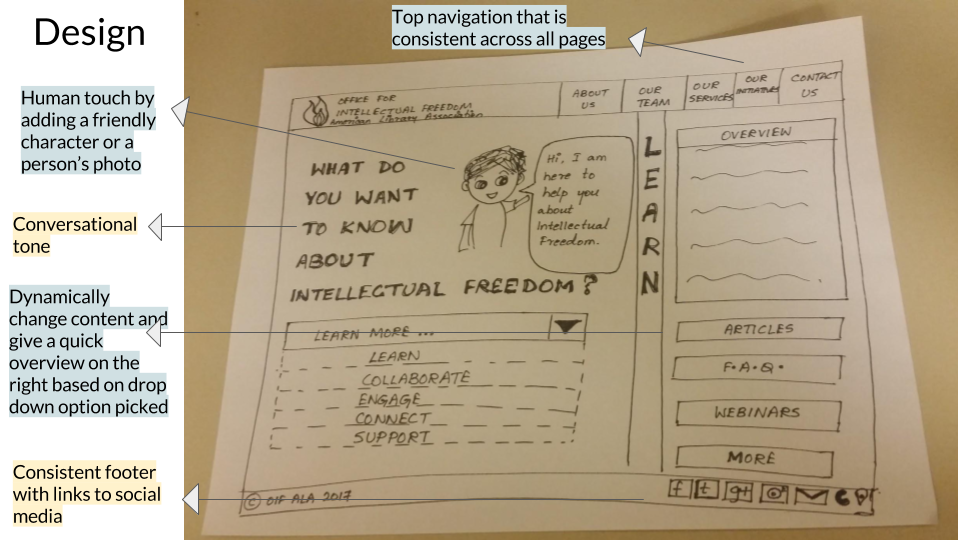 Design
Top navigation that is
consistent across all pages
Human touch by
adding a friendly
character or a
person's photo
Conversational
tone
Dynamically
change content and
give a quick
overview on the
right based on drop
down option picked
Consistent footer
with links to social
media
OFFICE FOR
INTELLECTUAL FREEDOM
American Library Association
ABOUT
US
OUR
TEAM
OUR
SERVICES
OUR
INITIATIVES
CONTACT
US
WHAT DO
YOU WANT
TO KNOW
ABOUT
INTELLECTUAL FREEDOM?
Hi, I am
here to
help you
about
Intellectual
Freedom.
LEARN MORE ...
LEARN
COLLABORATE
ENGAGE
CONNECT
SUPPORT
LEARN
OVERVIEW
ARTICLES
F.A.Q.
WEBINARS
MORE
© OIF ALA 2017
f t g+